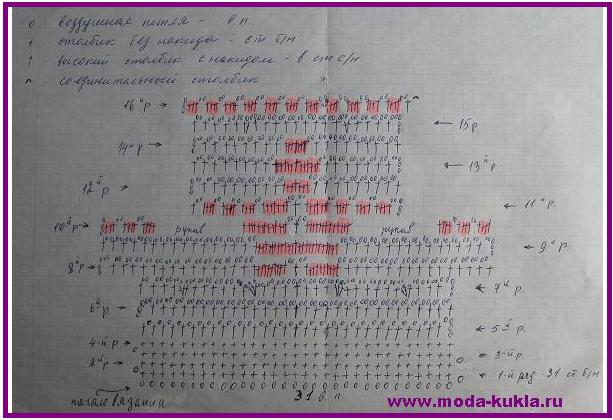 o - воздушная петля - в п
+ - столбик без накида - ст б/н
† - высокий столбик с накидом - в ст с/н
⌒ - соединительный столбик
16й р →
← 15 р
14й р. →
← 13й р
12й р →
← 11й р
10й р → рукав рукав
← 9й р.
8й р →
← 7й р
6й р →
← 5й р.
4-й р →
← 3-й р
2й р. →
← 1-й ряд 31 ст б/н
начало вязания 31 в. п
www.moda-kukla.ru